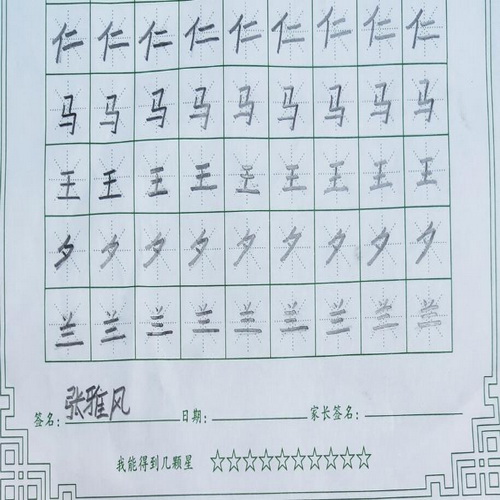 仁仁仁仁仁仁仁仁仁
马马马马马马马马马
王王王王王王王王
夕夕夕夕夕夕夕夕夕
兰兰兰兰兰兰兰兰兰
签名：张雅风 日期： 家长签名：
我能得到几颗星 ☆☆☆☆☆☆☆☆☆☆